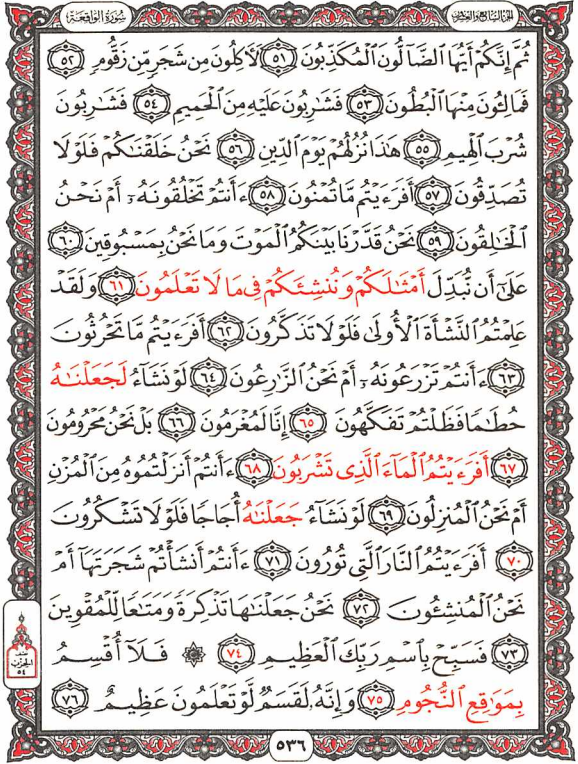 الجزء السابع والعشرون
سورة الواقعة
ثُمَّ إِنَّكُمْ أَيُّهَا الضَّآلُّونَ الْمُكَذِّبُونَ ٥١ لَأَكِلُونَ مِن شَجَرٍ مِّن زَقُّومٍ ٥٢
فَمَالِـُٔونَ مِنْهَا الْبُطُونَ ٥٣ فَشَٰرِبُونَ عَلَيْهِ مِنَ الْحَمِيمِ ٥٤ فَشَٰرِبُونَ
شُرْبَ الْهِيمِ ٥٥ هَٰذَا نُزُلُهُمْ يَوْمَ الدِّينِ ٥٦ نَحْنُ خَلَقْنَٰكُمْ فَلَوْلَا
تُصَدِّقُونَ ٥٧ أَفَرَءَيْتُم مَّا تُمْنُونَ ٥٨ ءَأَنتُمْ تَخْلُقُونَهُۥٓ أَمْ نَحْنُ
الْخَٰلِقُونَ ٥٩ نَحْنُ قَدَّرْنَا بَيْنَكُمُ الْمَوْتَ وَمَا نَحْنُ بِمَسْبُوقِينَ ٦٠
عَلَىٰٓ أَن نُّبَدِّلَ أَمْثَٰلَكُمْ وَنُنشِئَكُمْ فِى مَا لَا تَعْلَمُونَ ٦١ وَلَقَدْ
عَلِمْتُمُ النَّشْأَةَ الْأُولَىٰ فَلَوْلَا تَذَكَّرُونَ ٦٢ أَفَرَءَيْتُم مَّا تَحْرُثُونَ
٦٣ ءَأَنتُمْ تَزْرَعُونَهُۥٓ أَمْ نَحْنُ الزَّٰرِعُونَ ٦٤ لَوْ نَشَآءُ لَجَعَلْنَٰهُ
حُطَٰمًا فَظَلْتُمْ تَفَكَّهُونَ ٦٥ إِنَّا لَمُغْرَمُونَ ٦٦ بَلْ نَحْنُ مَحْرُومُونَ
٦٧ أَفَرَءَيْتُمُ الْمَآءَ الَّذِى تَشْرَبُونَ ٦٨ ءَأَنتُمْ أَنزَلْتُمُوهُ مِنَ الْمُزْنِ
أَمْ نَحْنُ الْمُنزِلُونَ ٦٩ لَوْ نَشَآءُ جَعَلْنَٰهُ أُجَاجًا فَلَوْلَا تَشْكُرُونَ
٧٠ أَفَرَءَيْتُمُ النَّارَ الَّتِى تُورُونَ ٧١ ءَأَنتُمْ أَنشَأْتُمْ شَجَرَتَهَآ أَمْ
نَحْنُ الْمُنشِـُٔونَ ٧٢ نَحْنُ جَعَلْنَٰهَا تَذْكِرَةً وَمَتَٰعًا لِّلْمُقْوِينَ
٧٣ فَسَبِّحْ بِاسْمِ رَبِّكَ الْعَظِيمِ ٧٤ ۞ فَلَآ أُقْسِمُ
بِمَوَٰقِعِ النُّجُومِ ٧٥ وَإِنَّهُۥ لَقَسَمٌ لَّوْ تَعْلَمُونَ عَظِيمٌ ٧٦
الحزب
٥٤
٥٣٦